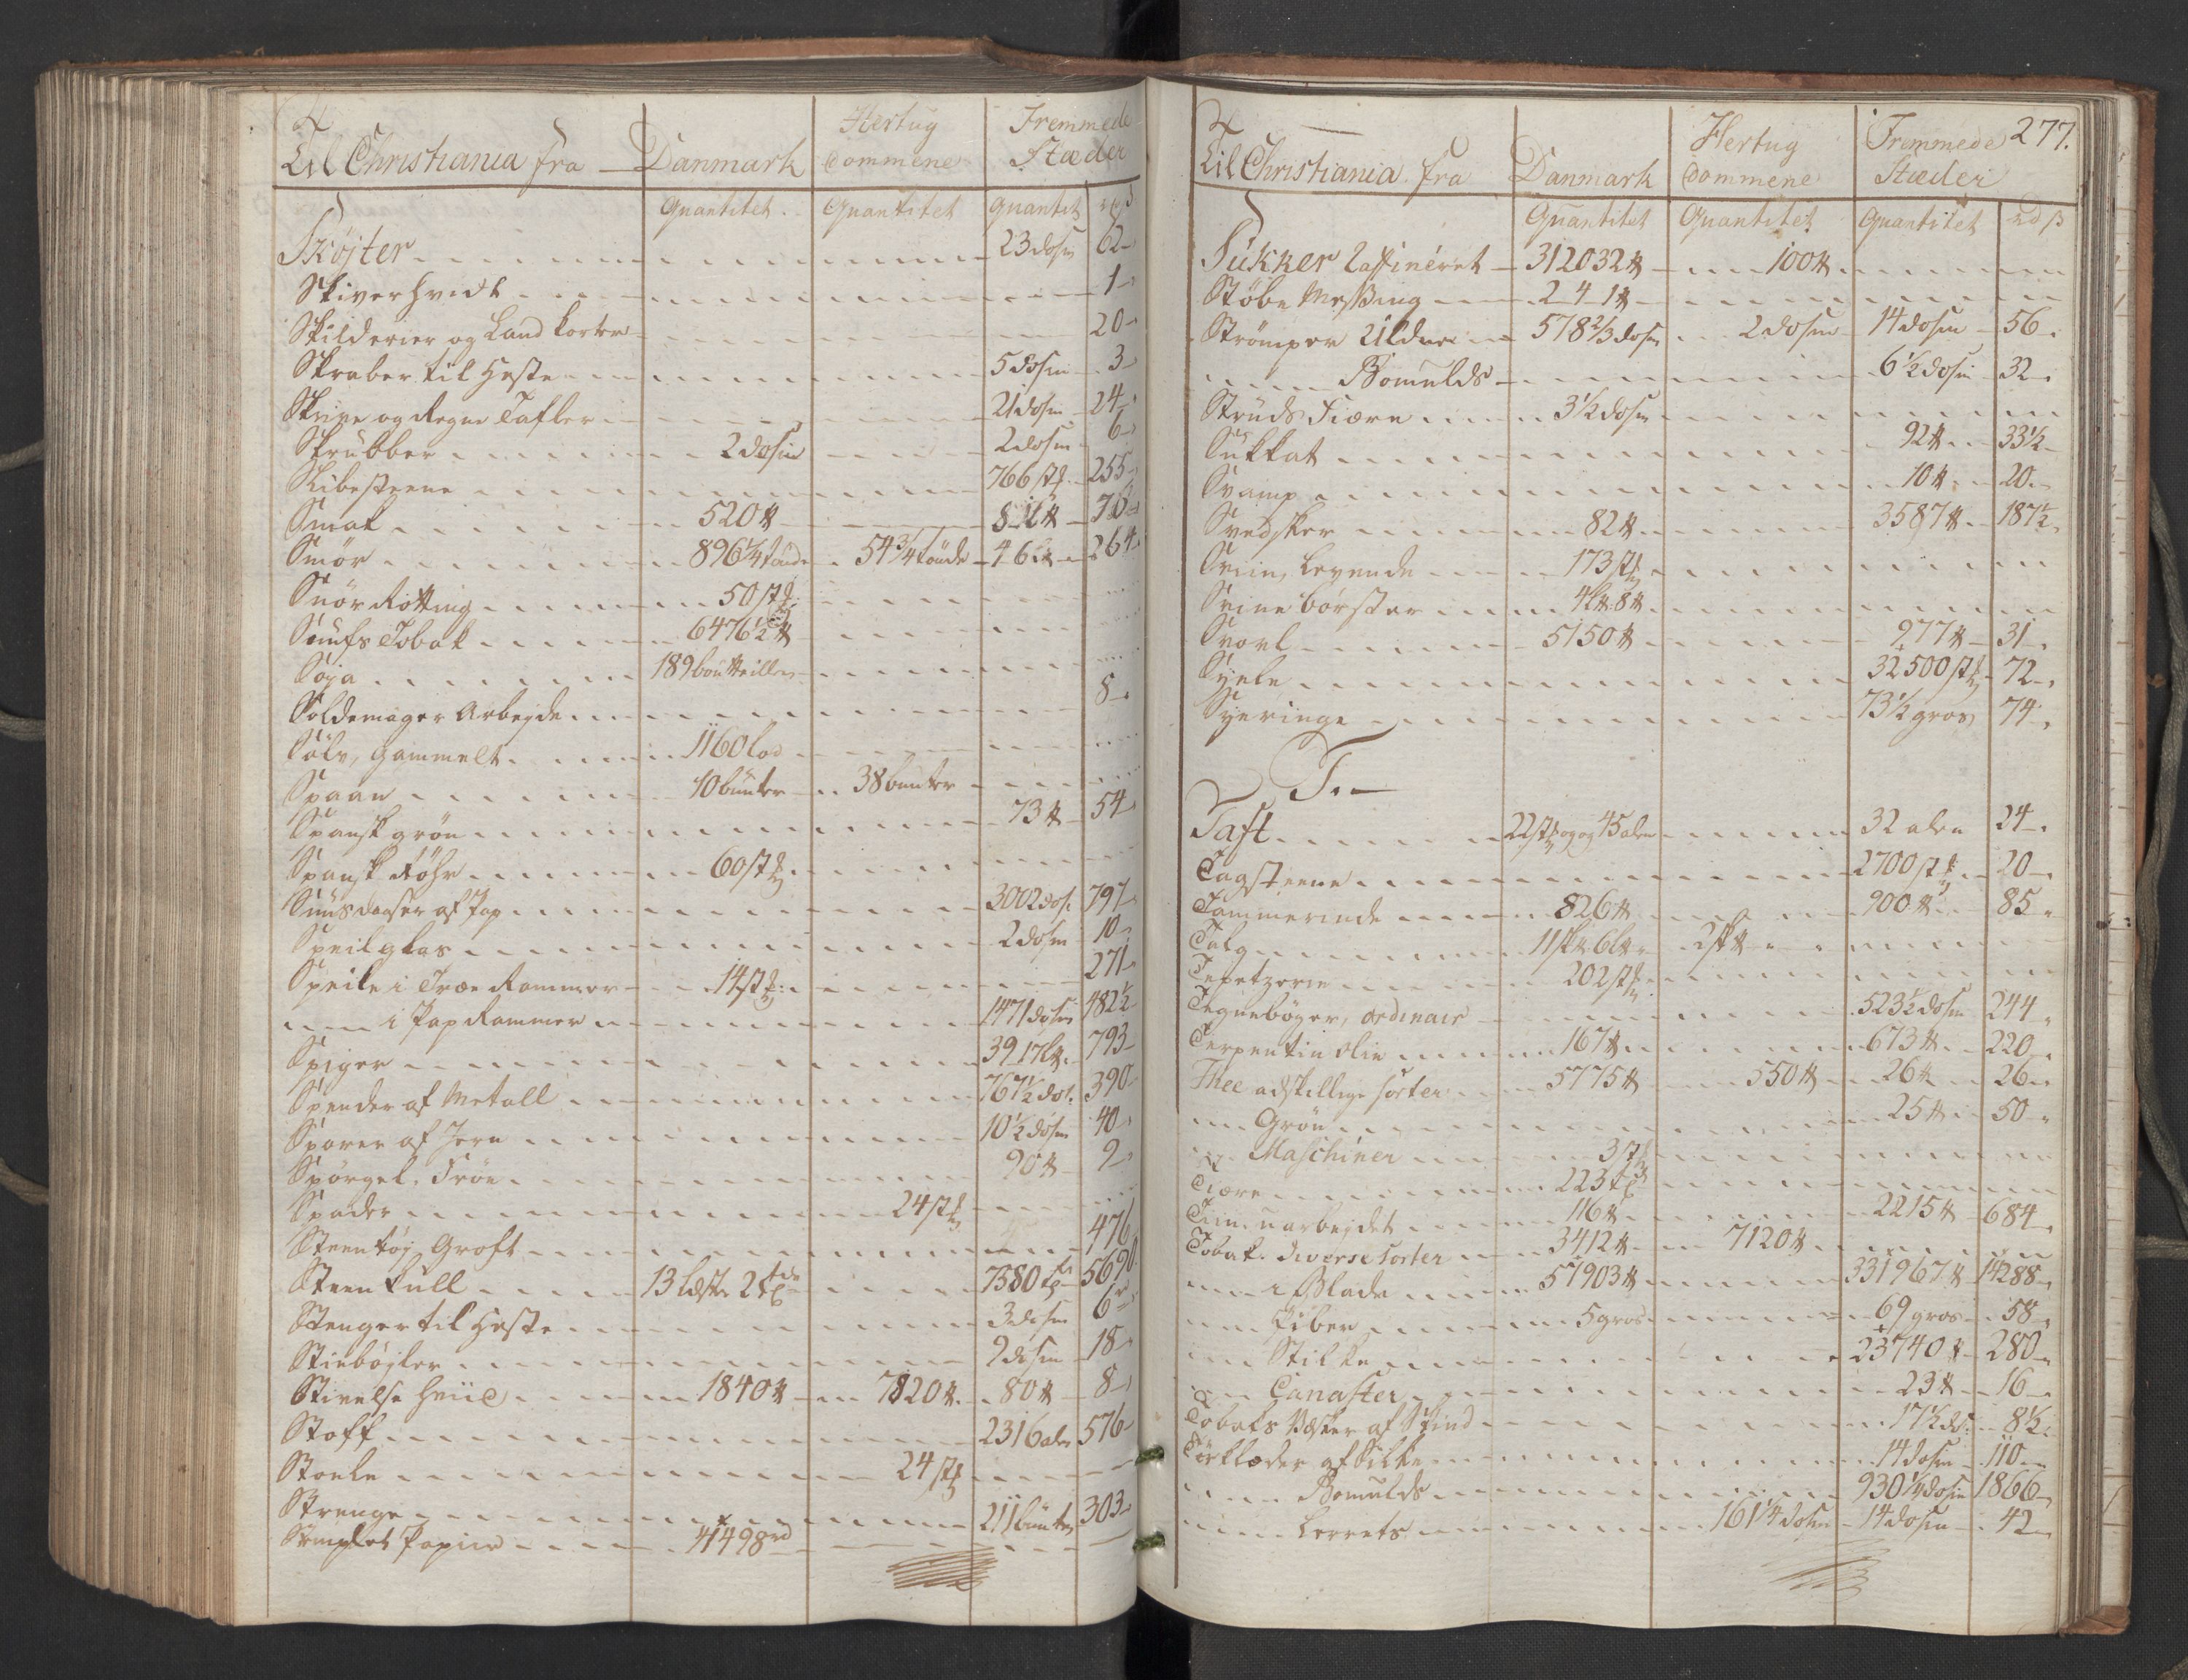 Til Christiania fra Danmark Hertug dommene Fremmede Stæder
Quantitet Quantitet Quantitet rd
Skøjter 23 dosin 62
Skiverhvidt 1
Skilderier og Land Korter 20
Skraber til Heste 5 dosin 3
Skrive og Regne Tafler 21 dosin 24
Skrubber 2 dosin 2 dosin 6
Slibesteene 766 stk 255
Smak 520 ℔
Smör 896 1/4 tönde 54 3/4 tönde 264
Snör Rotting 50 stk
Snufs Tobak 6476 1/2 ℔
Soya 189 boutteiller
Soldemager Arbejde 8
Sölv, gammelt 1160 lod
Spaan 10 bunter 38 bunter
Spansk grön 73 ℔ 54
Spansk Röhr 60 stk
Snusdaaser af Pap 3002 dos 797
Speilglas 2 dosin 10
Speile i Træe Rammer 14 stk 271
i Pap Rammer 1471 dosin 482 1/2
Spiger 39 17 l℔ 793
Spender af Metall 767 1/2 dos. 390
Sporer af Jern 10 1/2 dosin 40
Spörgel Fröe 90 ℔ 9
Spader 24 stk
Steentöj Groft 476
Steen Kull 13 læster 2 tde 7380 5690
Stenger til Heste 3 dosin 6
Stiebøjler 9 dosin 18
Stivelse hviid 1840 ℔ 7820 ℔ 80 ℔ 8
Stoff 2316 alen 576
Stoele 24 stk
Strenge 211 bunter 303
Stemplet Papiir 41498 rd
277.
Til Christiania fra Danmark Hertug dommene Fremmede Stæder
Quantitet Quantitet Quantitet rd ß
Sukker Raffineret 312032 ℔ 100 ℔
Støbe Messing 2 4 1 ℔
Strömper Uldne 578 2/3 dosin 2 dosin 14 dosin 56
Bomulds 6 1/2 dosin 32
Struds Fiære 3 1/2 dosin
Sukkat 92 ℔ 33 1/2
Svamp 10 ℔ 20
Svedsker 82 ℔ 3587 ℔ 187 1/2
Sviin, Levende 173 stk
Sviinebörster 4 l℔ 8 ℔
Svovl 5150 ℔ 977 ℔ 31
Syele 32500 stk 72
Syeringe 73 1/2 gros 74
T.
Taft 22 stk og 45 alen 32 alen 24
Tagsteene 2700 stk 20
Tammerinde 826 ℔ 900 ℔ 85
Talg 11 sk℔ 6 l℔ 2 sk℔
Tapetzerie 202 stk
Tegnebøger, ordinair 523 1/2 dosin 244
Terpentin olie 167 ℔ 673 ℔ 220
Thee adskillige sorter 5775 ℔ 550 ℔ 26 ℔ 26
Grön 25 ℔ 50
Maschiner 3 stk
Tiære 223
Tiin uarbejdet 116 ℔ 2215 ℔ 684
Tobak. diverse sorter 3412 ℔ 7120 ℔
i Blade 57903 ℔ 331967 ℔ 14288
Piber 5 gros 69 gros 58
Stilke 23740 ℔ 280
Canaster 23 ℔ 16
Tobaks Væsker af Skind 17 1/2 ds 8 1/2
Tørklæder af Silke 14 dosin 110
Bomulds 930 1/4 dosin 1866
Lerrets 161 1/4 dosin 14 dosin 42